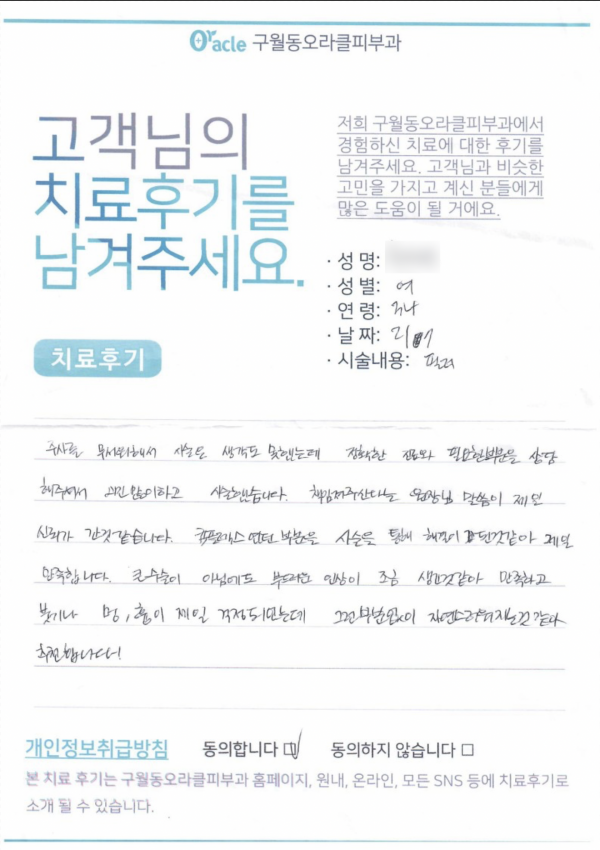 Oracle 구월동오라클피부과
고객님의
치료후기를
남겨주세요.
저희 구월동오라클피부과에서
경험하신 치료에 대한 후기를
남겨주세요. 고객님과 비슷한
고민을 가지고 계신 분들에게
많은 도움이 될 거에요.
· 성 명:
· 성 별: 여
· 연 령:
· 날 짜:
· 시술내용: 필러
치료후기
주사를 무서워해서 시술은 생각도 못했는데 정확한 진료와 필요한부분을 상담
해주셔서 고민않이하고 시술했습니다. 책임져주신다는 원장님 말씀이 제일
신뢰가 간것같습니다. 콤플렉스였던 부분을 시술을 통해 해결이 된것같아 제일
만족합니다. 코수술이 아님에도 부드러운 인상이 조금 생긴것같아 만족하고
붓기나 멍, 흉이 제일 걱정되었는데 그런부분없이 자연스러워지는것 같아
추천합니다!
개인정보취급방침 동의합니다 □ 동의하지 않습니다 □
본 치료 후기는 구월동오라클피부과 홈페이지, 원내, 온라인, 모든 SNS 등에 치료후기로
소개 될 수 있습니다.